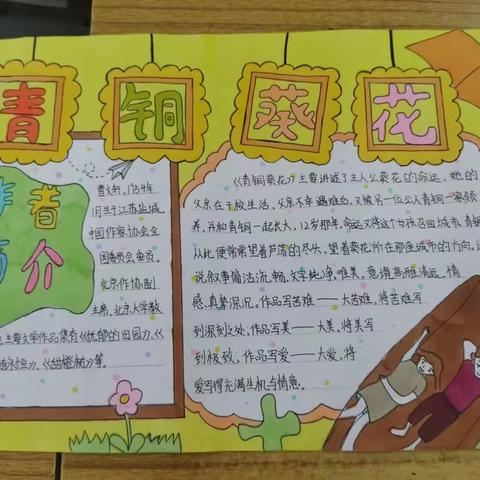 青铜葵花
作者
简介
曹文轩，1954年
1月生于江苏盐城，
中国作家协会全
国委员会委员，
北京作协副
主席，北京大学教
主要文学作品集有《忧郁的田园》，《
》，《甜橙树》等。
《青铜葵花》主要讲述了主人公葵花的命运，她的
父亲在干校生活，父亲不幸遇难后，又被另一位公人青铜一家领
养，并和青铜一起长大，12岁那年，命运又将这个女孩召回城市，青铜
从此便常常望着芦荡的尽头，望着葵花所在那座城市的方向。小
说叙事简洁流畅，文字纯净唯美，意境高雅清远，情
感真挚深沉。作品写苦难——大苦难，将苦难写
到深刻之处，作品写美——大美，将美写
到极致；作品写爱——大爱，将
爱写得充满生机与情意。